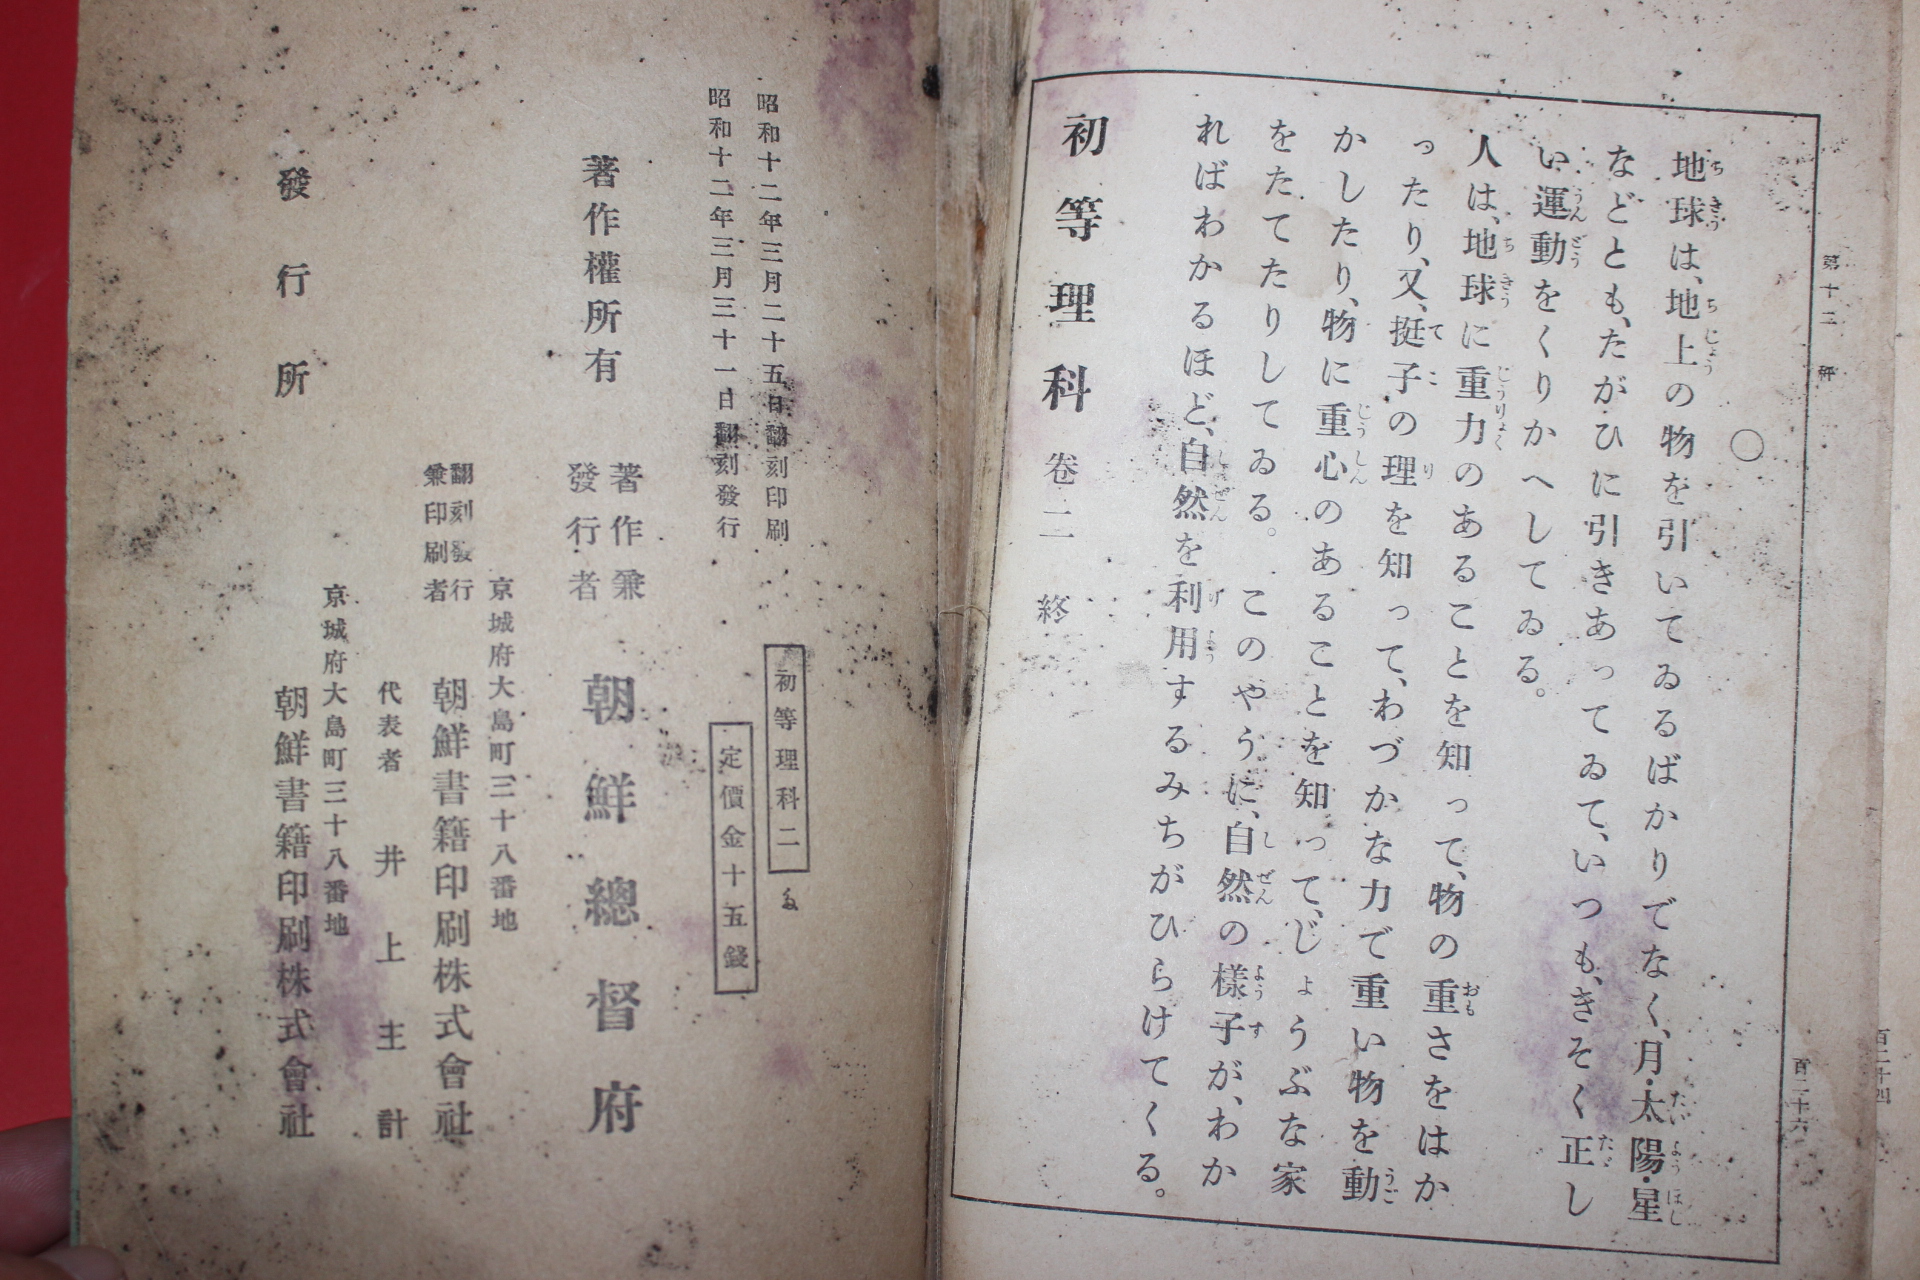 百二十四
第十二 秤
百二十六
〇
地球は、地上の物を引いてゐるばかりでなく、月・太陽・星
などとも、たがひに引きあってゐて、いつも、きそく正し
い運動をくりかへしてゐる。
人は、地球に重力のあることを知って、物の重さをはか
ったり、又、挺子の理を知って、わづかな力で重い物を動
かしたり、物に重心のあることを知って、じょうぶな家
をたてたりしてゐる。このやうに、自然の様子が、わか
ればわかるほど、自然を利用するみちがひらけてくる。
初等理科 卷二 終
昭和十二年三月二十五日翻刻印刷
昭和十二年三月三十一日翻刻發行
初等理科二
定價金十五錢
著作權所有
著作兼
發行者
朝鮮總督府
京城府大島町三十八番地
翻刻發行
兼印刷者
朝鮮書籍印刷株式會社
代表者 井上主計
京城府大島町三十八番地
發行所
朝鮮書籍印刷株式會社